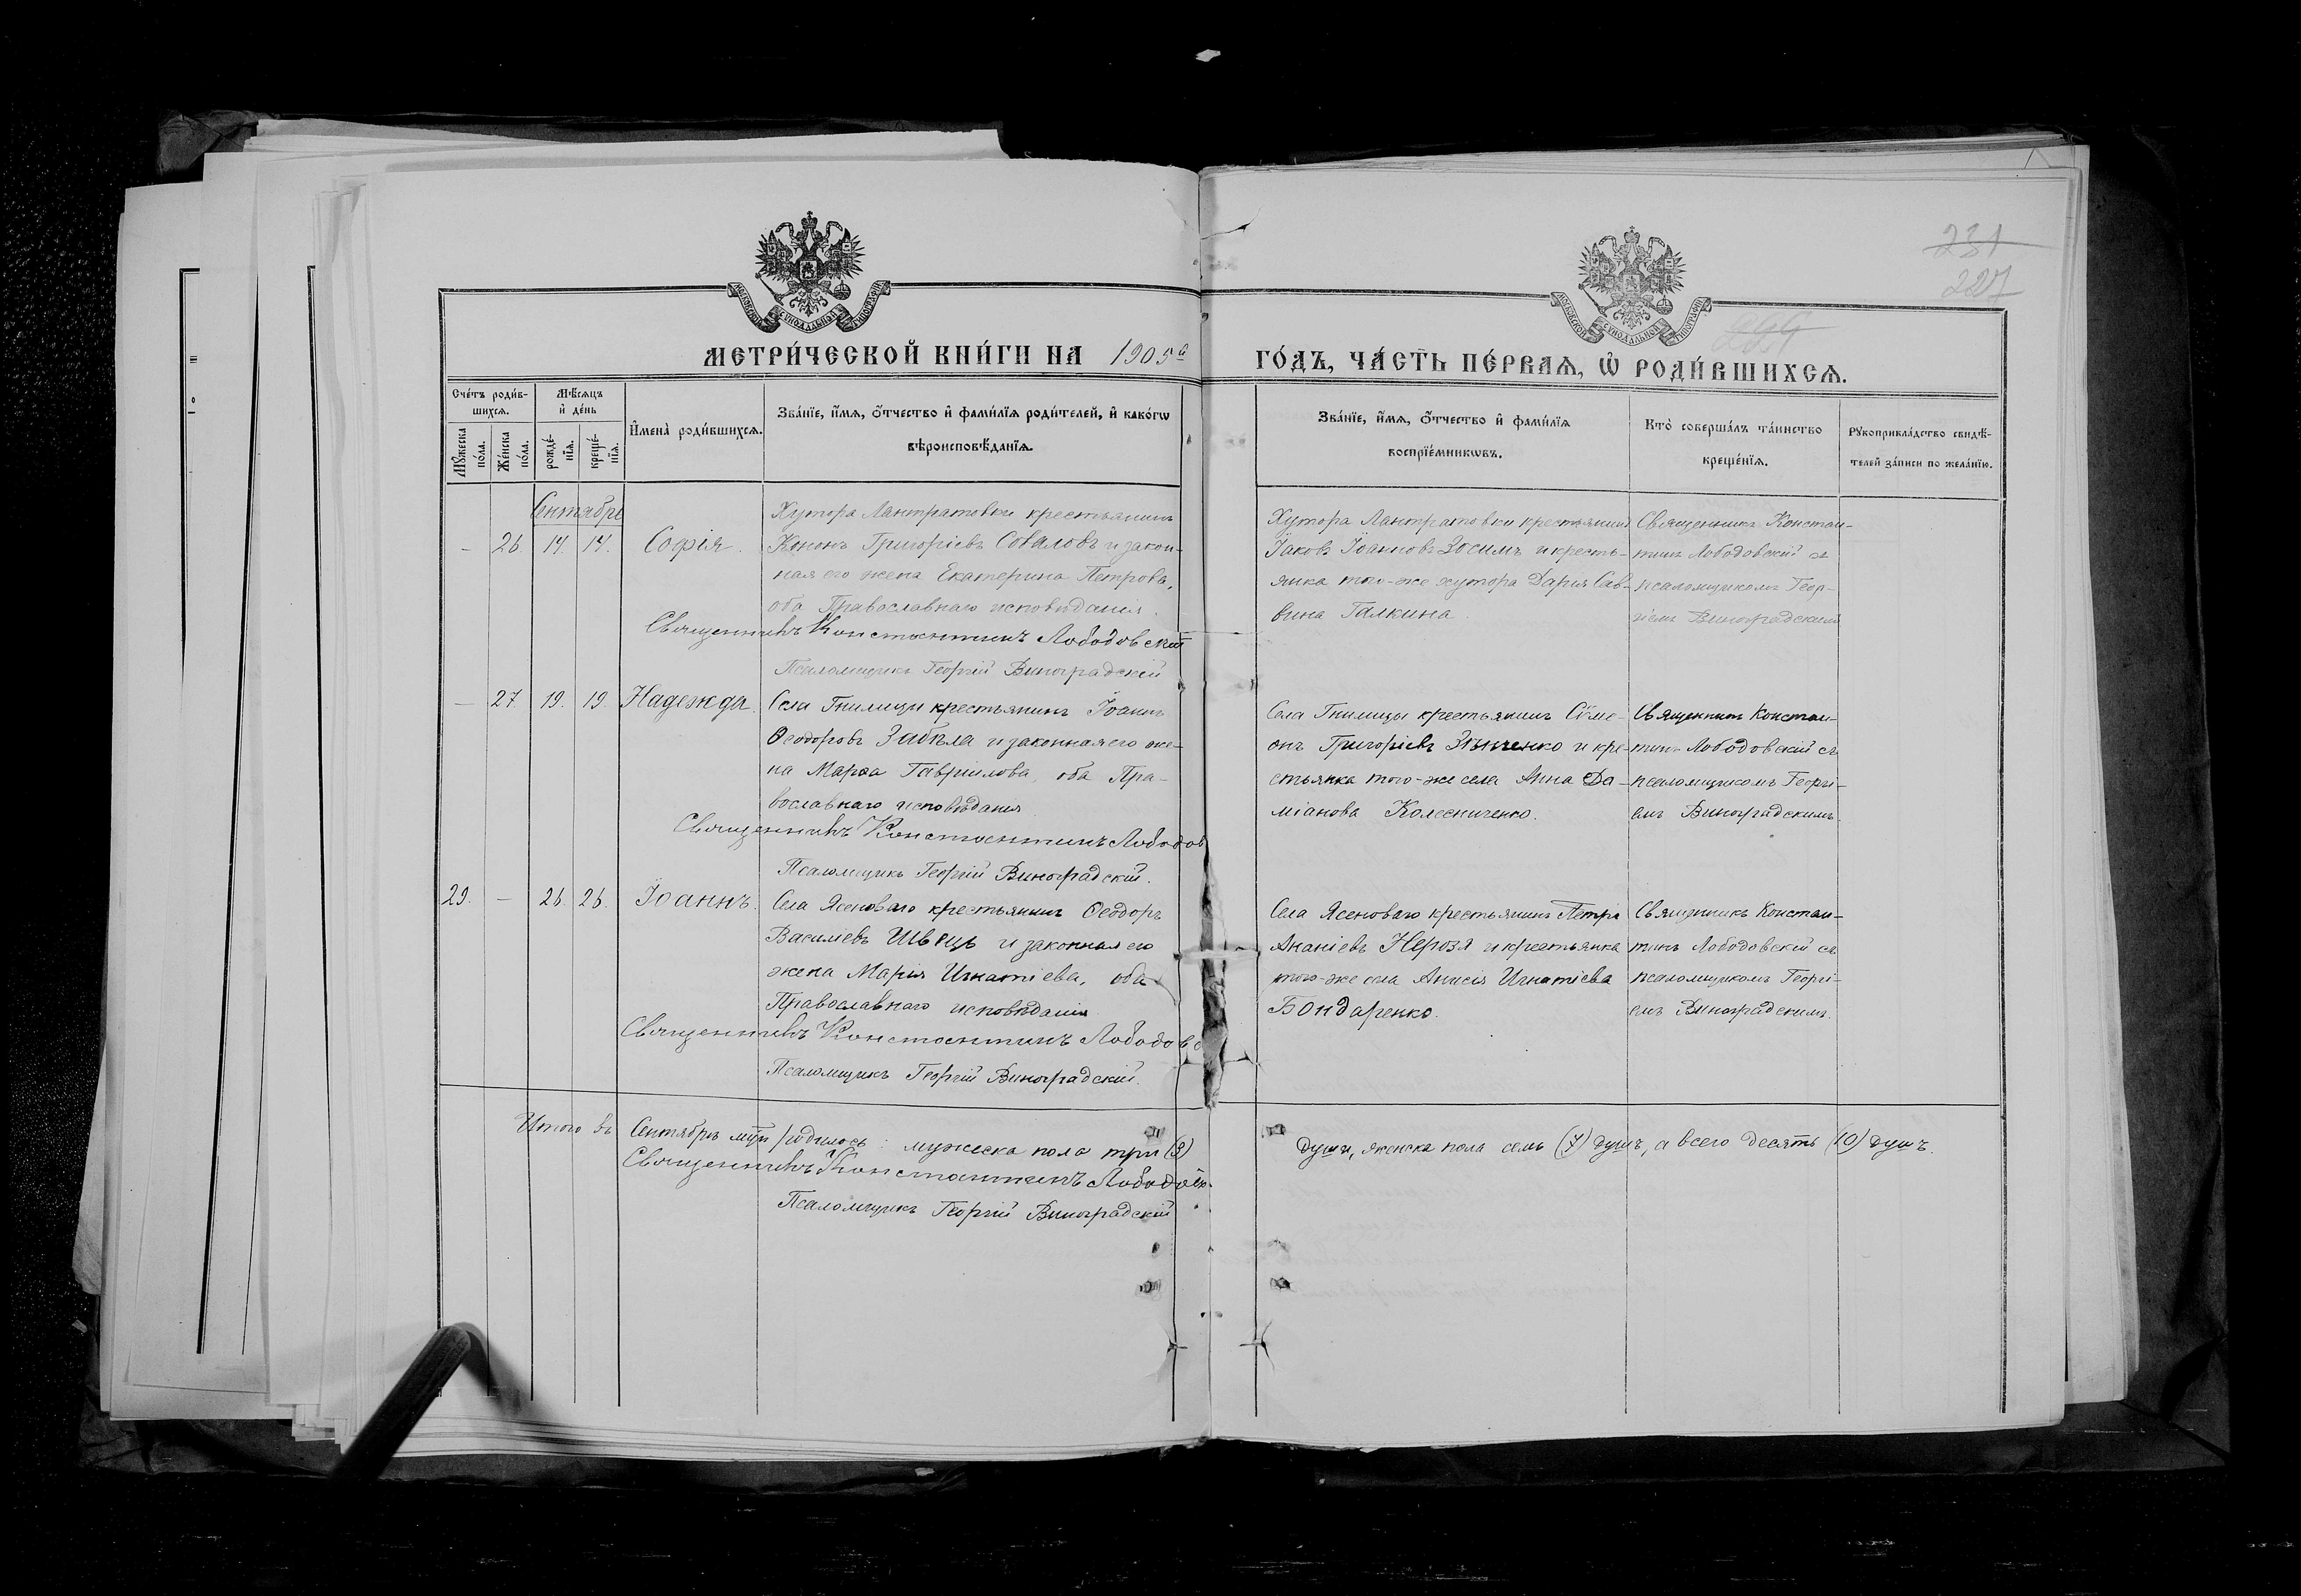 231
227
МЕТРИ́ЧЕСКОЙ КНИ́ГИ НА 1905й
ГО́ДЪ, ЧА́СТЬ ПЕ́РВАѦ, Ѡ҆ РОДИ́ВШИХСѦ.
Сче́тъ роди́в-
шихсѧ.
Мꙋ́жеска
по́ла.
Же́нска
по́ла.
Мѣ́сѧцъ
и҆ де́нь
рожде́-
нїѧ.
креще́-
нїѧ.
И҆мена̀ роди́вшихсѧ.
Зва́нїе, и҆́мѧ, ѻ҆́тчество и҆ фами́лїѧ роди́телей, и҆ како́гѡ
вѣроисповѣ́данїѧ.
Зва́нїе, и҆́мѧ, ѻ҆́тчество и҆ фами́лїѧ
воспрїе́мникѡвъ.
Кто̀ соверша́лъ та́инство
креще́нїѧ.
Рꙋкоприкла́дство свидѣ́-
телей за́писи по жела́нїю.
Сентябрь
– 26. 17. 17. Софія.
Хутора Лантратовки крестьянинъ
Кононъ Григоріевъ Соваловъ и закон-
ная его жена Екатерина Петрова,
оба Православнаго исповѣданія.
Священникъ Константинъ Лободовскій
Псаломщикъ Георгій Виноградскій
Хутора Лантратовки крестьянинъ
Іаковъ Іоанновъ Зосимъ и кресть-
янка того-же хутора Дарія Сав-
вина Галкина.
Священникъ Констан-
тинъ Лободовскій съ
псаломщикомъ Геор-
гіемъ Виноградскимъ
– 27. 19. 19. Надежда.
Села Гнилицы крестьянинъ Іоаннъ
Ѳеодоровъ Забѣла и законная его же-
на Марѳа Гавріилова, оба Пра-
вославнаго исповѣданія
Священникъ Константинъ Лободов
Псаломщикъ Георгій Виноградскій.
Села Гнилицы крестьянинъ Сѵме-
онъ Григоріевъ Зѣнченко и кре-
стьянка того-же села Анна Да-
міанова Колесниченко.
Священникъ Констан-
тинъ Лободовскій съ
псаломщикомъ Георгі-
емъ Виноградскимъ.
29. – 26. 26. Іоаннъ.
Села Ясеноваго крестьянинъ Ѳеодоръ
Василіевъ Швець и законная его
жена Марія Игнатіева, оба
Православнаго исповѣданія
Священникъ Константинъ Лободовс
Псаломщикъ Георгій Виноградскій.
Села Ясеноваго крестьянинъ Петръ
Ананіевъ Нерозя и крестьянка
того-же села Анисія Игнатіева
Бондаренко.
Священникъ Констан-
тинъ Лободовскій съ
псаломщикомъ Георгі-
емъ Виноградскимъ.
Итого въ Сентябрѣ мцѣ родилось: мужеска пола три (3)
души, женска пола семь (7) душъ, а всего десять (10) душъ.
Священникъ Константинъ Лободов
Псаломщикъ Георгій Виноградскій